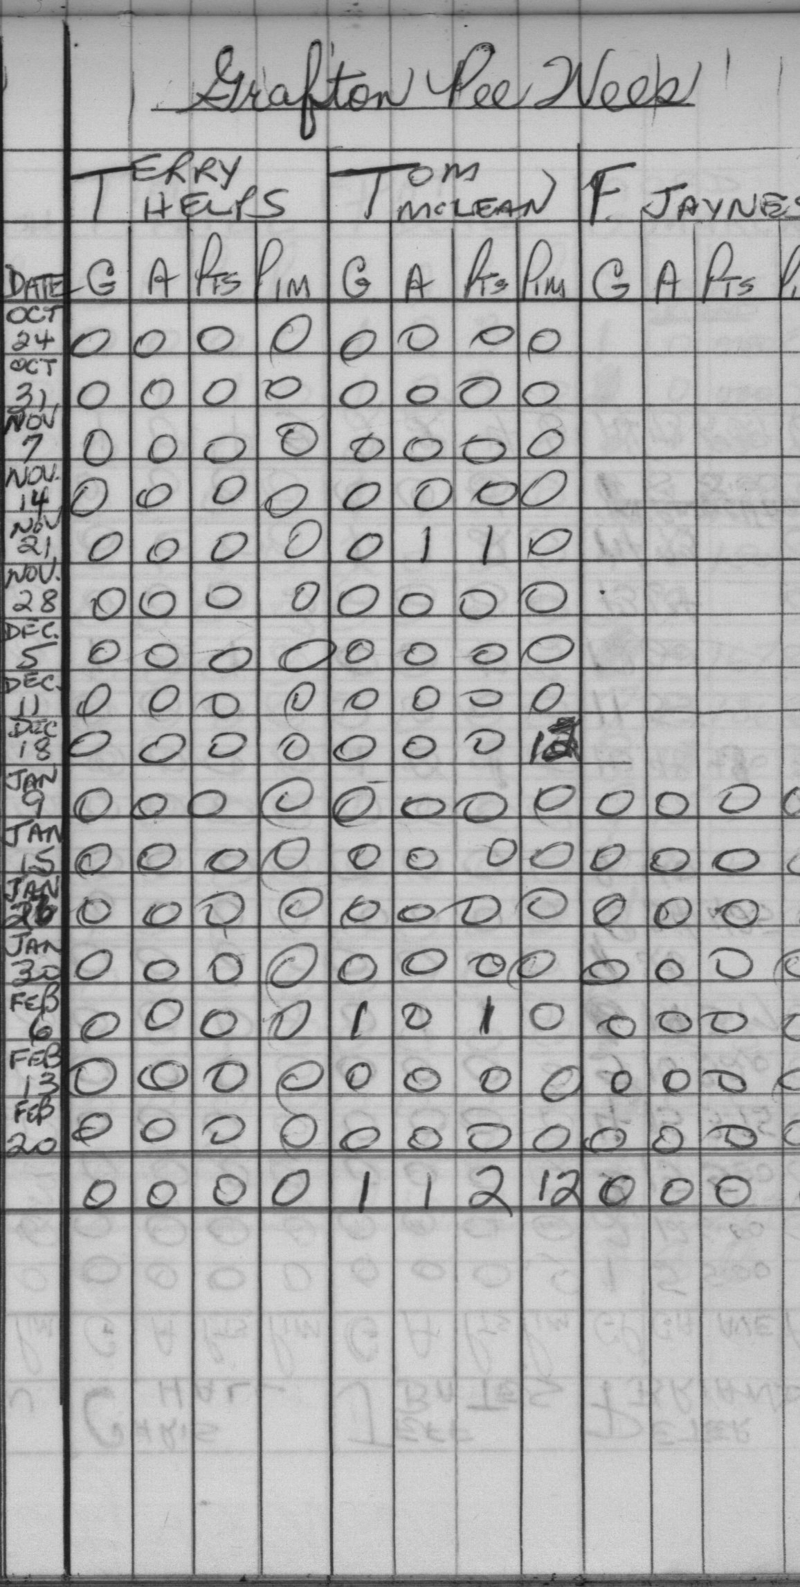 Grafton Pee Wees
TERRY HELPS TOM MCLEAN F JAYNES
DATE G A PTS PIM G A PTS PIM G A PTS
OCT 24 0 0 0 0 0 0 0 0
OCT 31 0 0 0 0 0 0 0 0
NOV 7 0 0 0 0 0 0 0 0
NOV. 14 0 0 0 0 0 0 0 0
NOV 21 0 0 0 0 0 1 1 0
NOV. 28 0 0 0 0 0 0 0 0
DEC. 5 0 0 0 0 0 0 0 0
DEC. 11 0 0 0 0 0 0 0 0
DEC 18 0 0 0 0 0 0 0 12
JAN 9 0 0 0 0 0 0 0 0 0 0 0 0
JAN 15 0 0 0 0 0 0 0 0 0 0 0 0
JAN 0 0 0 0 0 0 0 0 0 0 0
JAN 30 0 0 0 0 0 0 0 0 0 0 0 0
FEB 6 0 0 0 0 1 0 1 0 0 0 0 0
FEB 13 0 0 0 0 0 0 0 0 0 0 0 0
FEB 20 0 0 0 0 0 0 0 0 0 0 0 0
0 0 0 0 1 1 2 12 0 0 0